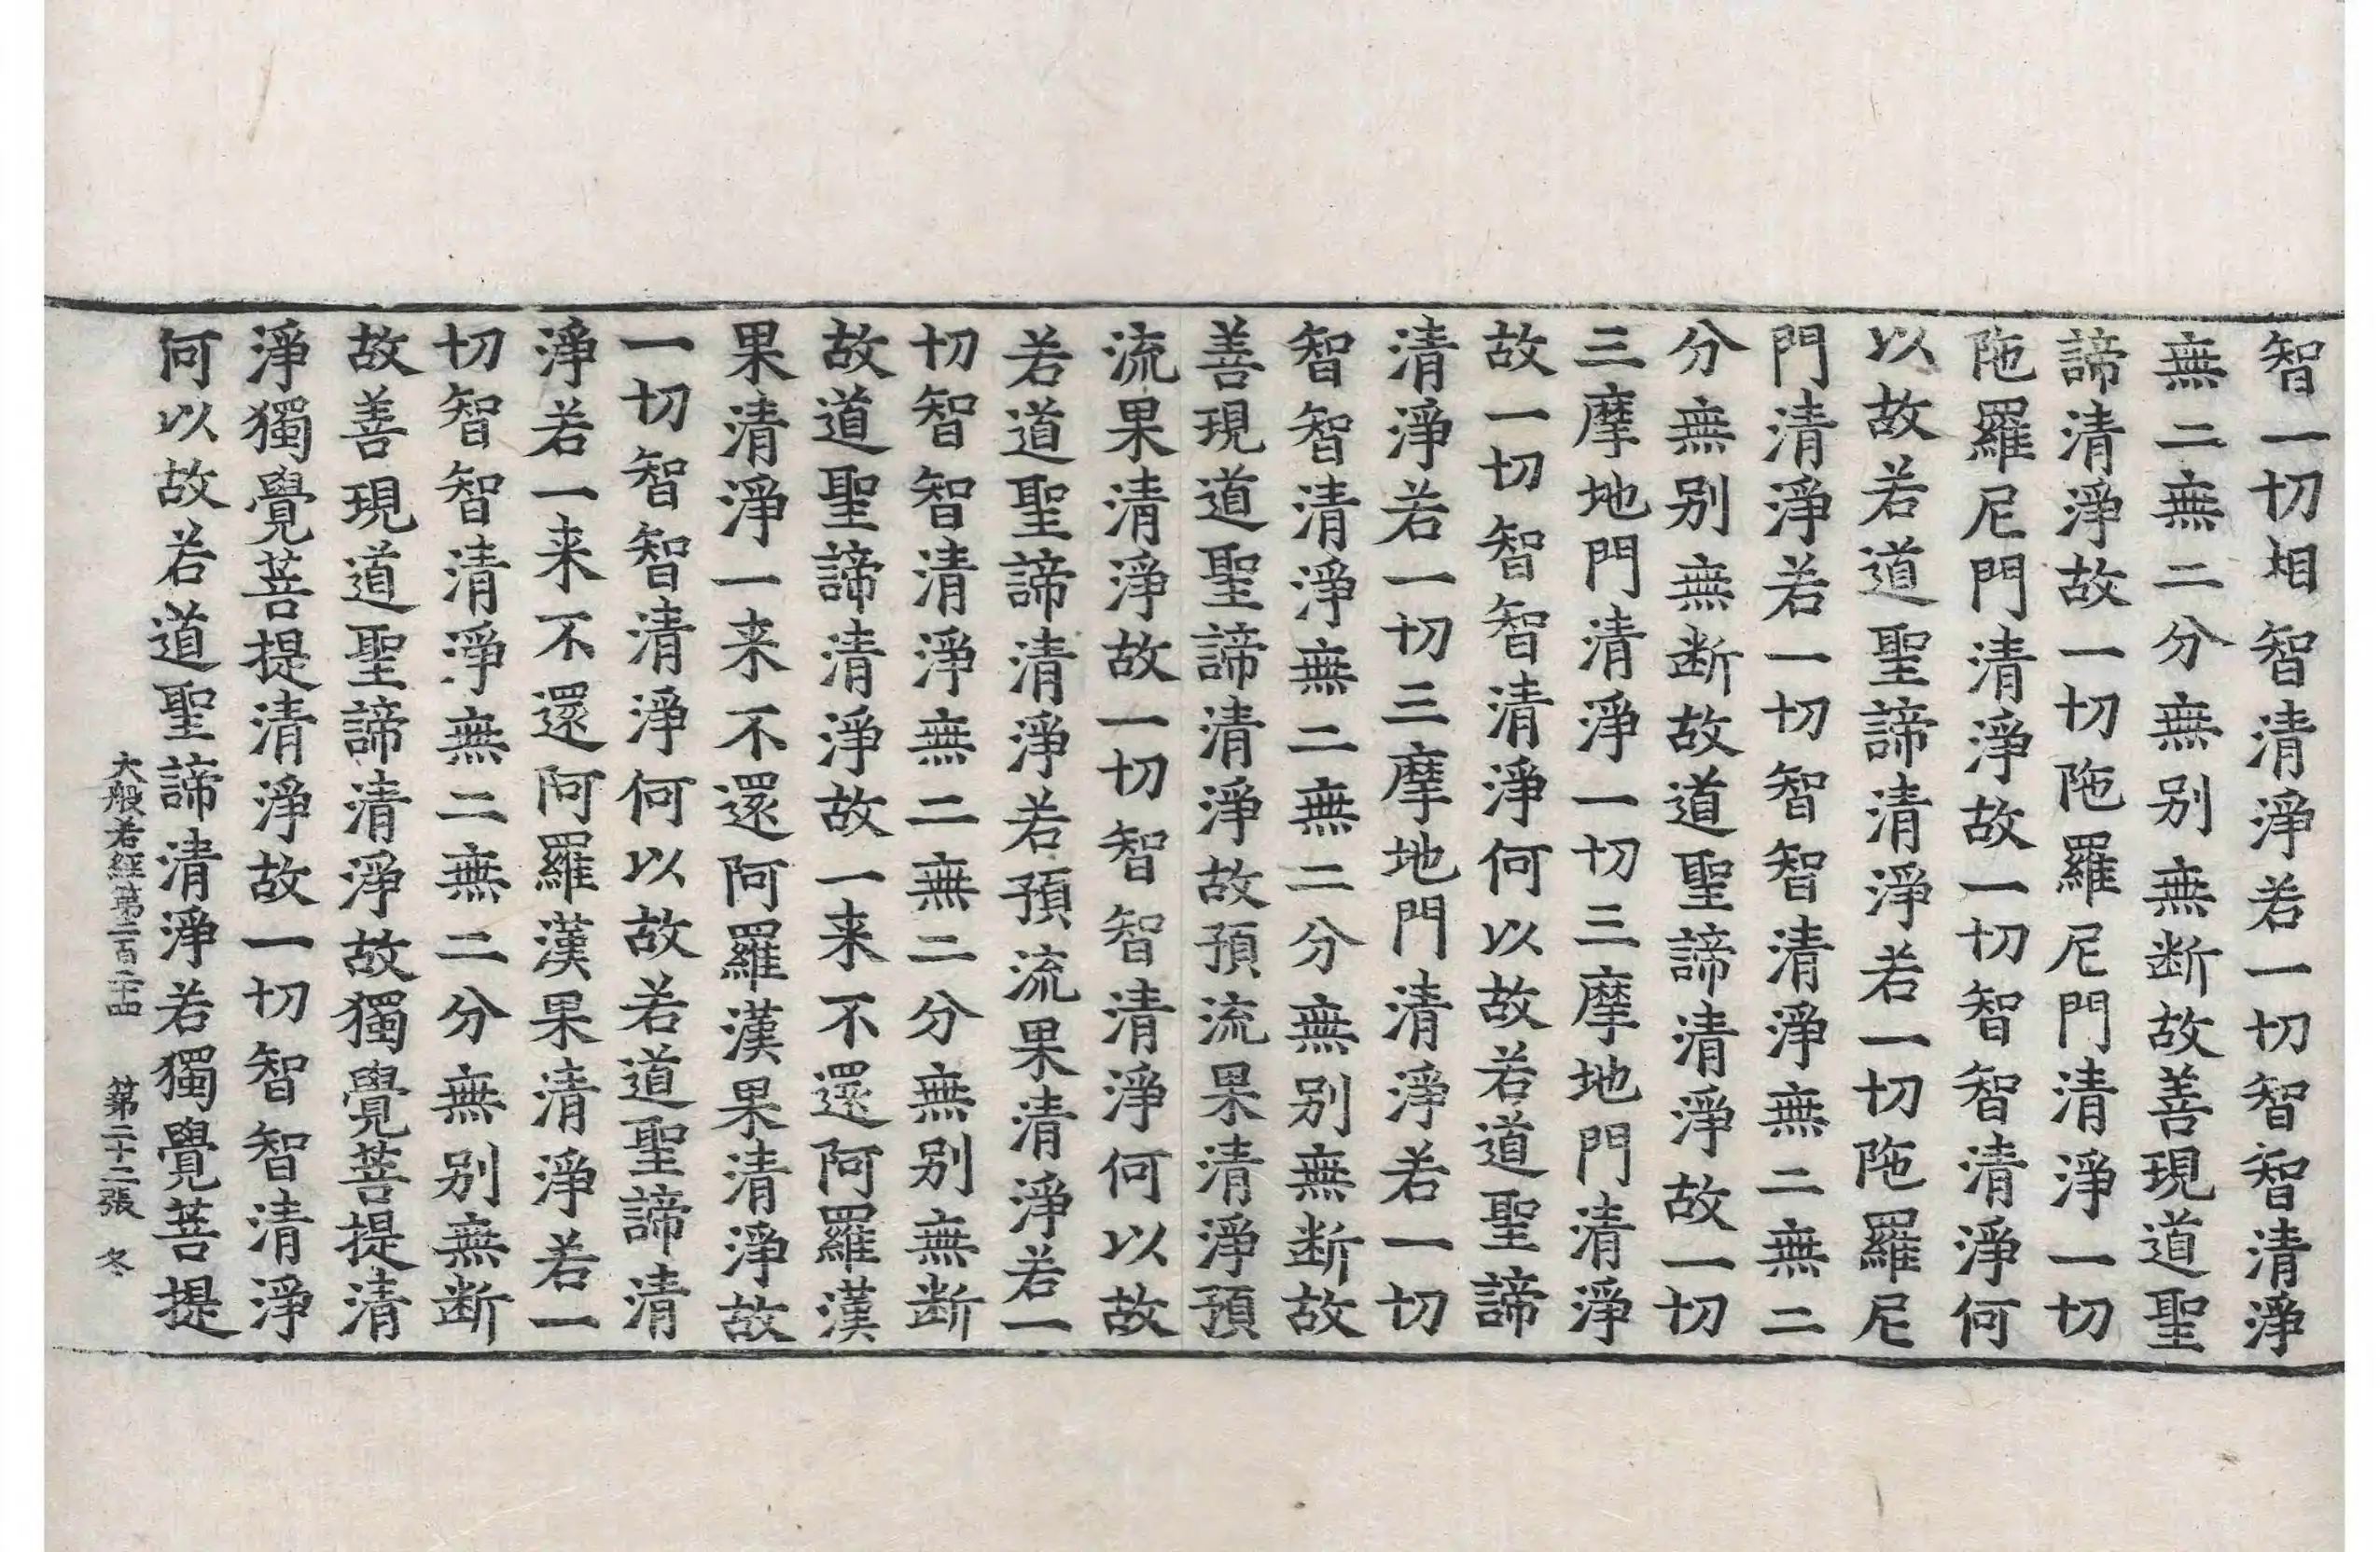 智一切相智清淨若一切智智清淨
無二無二分無别無断故善現道聖
諦清淨故一切陁羅尼門清淨一切
陁羅尼門清淨故一切智智清淨何
以故若道聖諦清淨若一切陁羅尼
門清淨若一切智智清淨無二無二
分無别無断故道聖諦清淨故一切
三摩地門清淨一切三摩地門清淨
故一切智智清淨何以故若道聖諦
清淨若一切三摩地門清淨若一切
智智清淨無二無二分無别無断故
善現道聖諦清淨故預流果清淨預
流果清淨故一切智智清淨何以故
若道聖諦清淨若預流果清淨若一
切智智清淨無二無二分無别無断
故道聖諦清淨故一来不還阿羅漢
果清淨一来不還阿羅漢果清淨故
一切智智清淨何以故若道聖諦清
淨若一来不還阿羅漢果清淨若一
切智智清淨無二無二分無别無断
故善現道聖諦清淨故獨覺菩提清
淨獨覺菩提清淨故一切智智清淨
何以故若道聖諦清淨若獨覺菩提
大般若經第二百二十四 第二十二張 冬